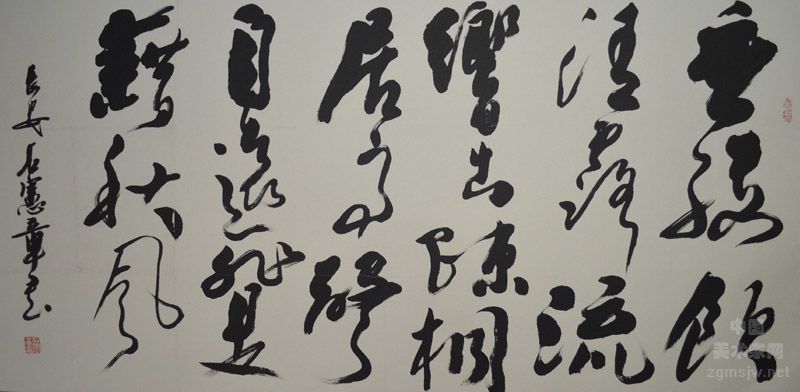 垂緌飲
清露流
響出疎桐
居高聲
自遠非是
藉秋風
長安石憲章書
中国
美术家网
zgmsjw.net